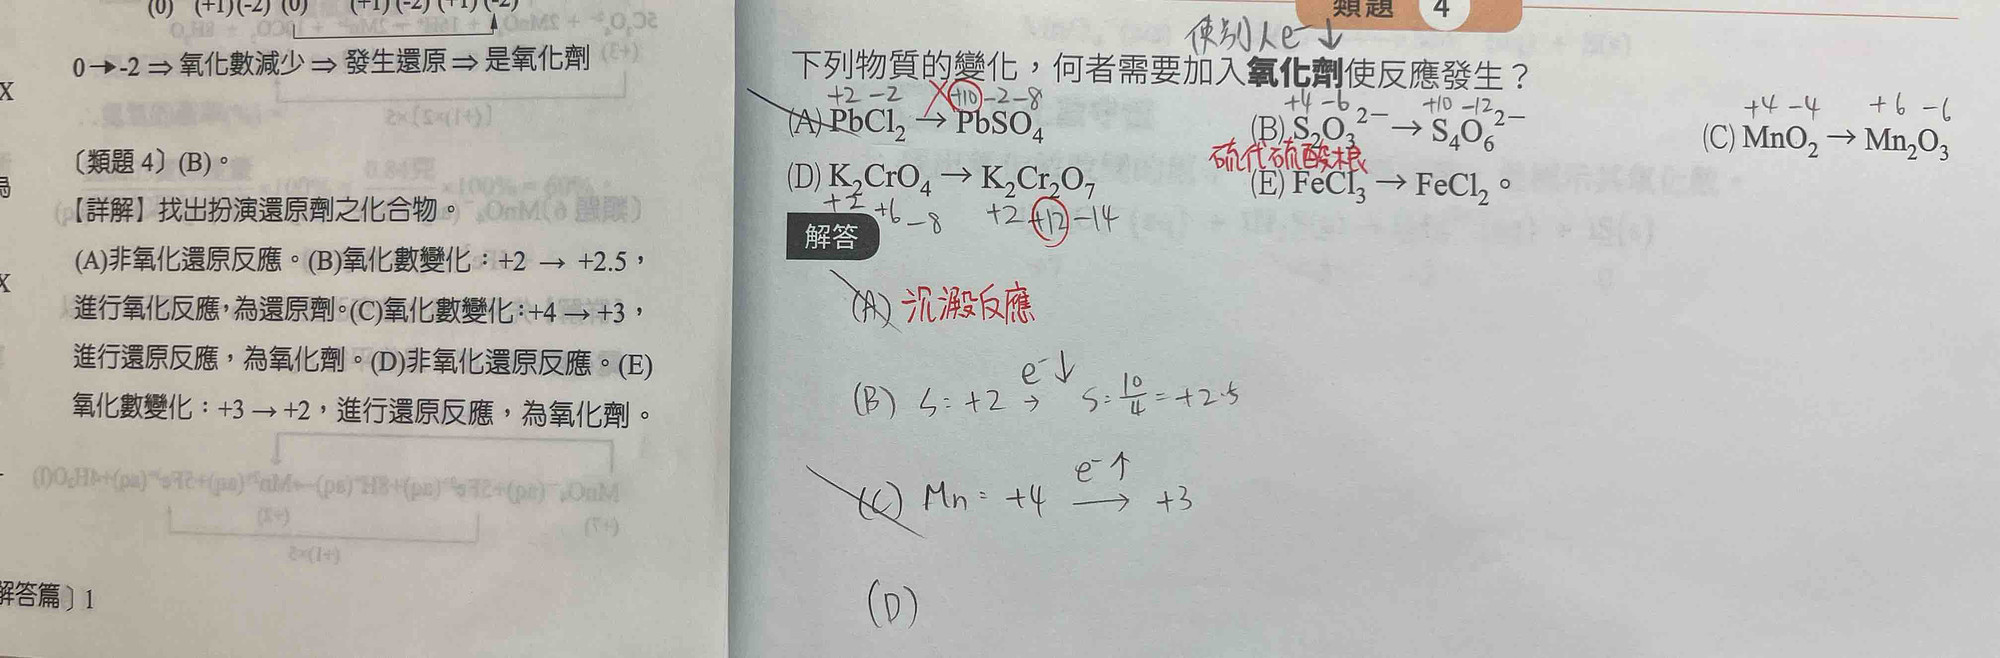 (0) (+1)(-2) (0) (+1)(-2)(+1)(-2)
0→-2⇒氧化數減少⇒發生還原⇒是氧化劑
〔類題 4〕(B)。
【詳解】找出扮演還原劑之化合物。
(A)非氧化還原反應。(B)氧化數變化：+2 → +2.5，
進行氧化反應，為還原劑。(C)氧化數變化：+4→+3，
進行還原反應，為氧化劑。(D)非氧化還原反應。(E)
氧化數變化：+3→+2，進行還原反應，為氧化劑。
解答篇〕1
類題 4
使別人e⁻↓
下列物質的變化，何者需要加入氧化劑使反應發生？
+2 -2 X +10 -2 -8 +4 -6 +10 -12 +4 -4 +6 -6
(A) PbCl₂ → PbSO₄ (B) S₂O₃²⁻ → S₄O₆²⁻ (C) MnO₂ → Mn₂O₃
硫代硫酸根
(D) K₂CrO₄ → K₂Cr₂O₇ (E) FeCl₃ → FeCl₂。
+2 +6 -8 +2 +12 -14
解答
(A) 沉澱反應
e⁻↓
(B) S: +2 → S: 10/4 = +2.5
e⁻↑
(C) Mn: +4 → +3
(D)